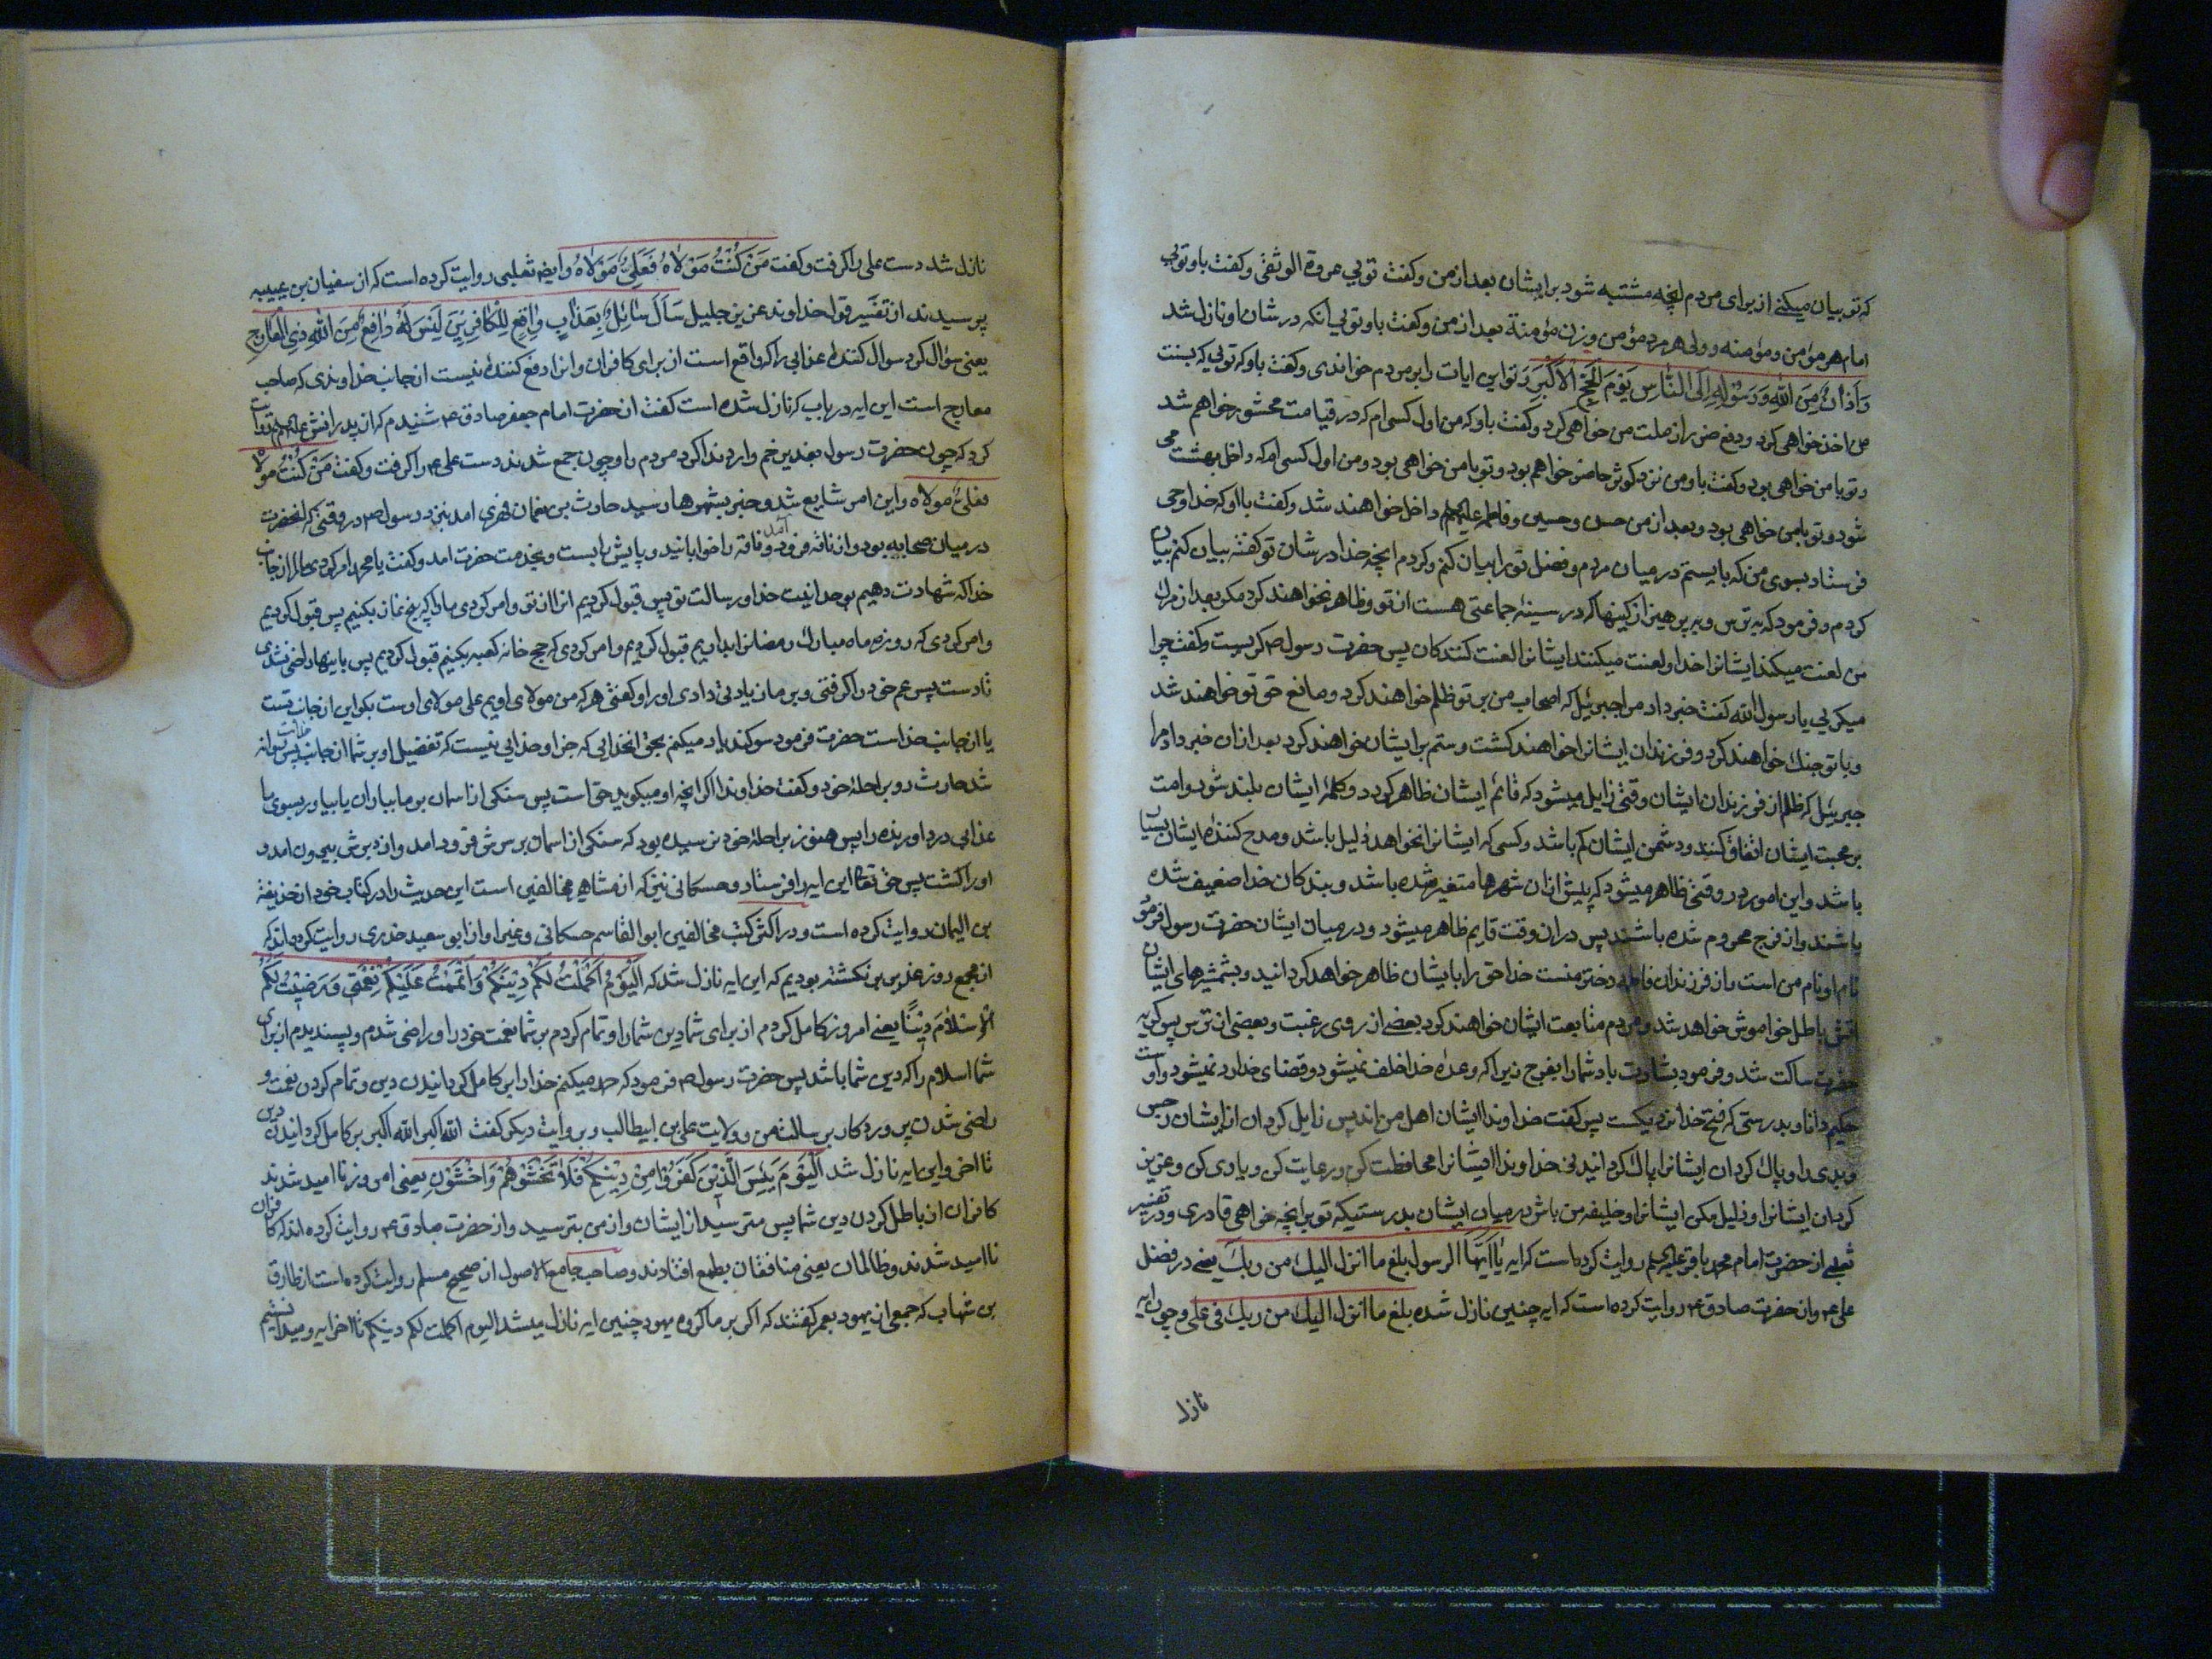 که تو بیان میکنے از برای مردم انچه مشتبه شود برایشان بعد از من وکفت تویی عروة الوثقی وکفت باو تویی
امام هر مؤمن ومؤمنه وولی هر مرد مؤمن وزن مؤمنة بعد از من وکفت باو تویی انکه در شان او نازل شد
وَاَذانٌ مِنَ اللّٰهِ وَرَسُولِهِ اِلَی النّاسِ یَوْمَ الْحَجِّ الْاَکْبَرِ وتو این ایات را بر مردم خواندی وکفت باو که تویی که بسنت
من اخذ خواهی کرد ودفع ضرر از ملت من خواهی کرد وکفت باو که من اول کسی ام که در قیامت محشور خواهم شد
وتو با من خواهی بود وکفت باو من نزد کوثر حاضر خواهم بود وتو با من خواهی بود ومن اول کسی ام که داخل بهشت می
شود وتو با من خواهی بود وبعد از من حسن وحسین وفاطمه علیهم داخل خواهند شد وکفت با او که خدا وحی
فرستاد بسوی من که بایستم در میان مردم وفضل تو را بیان کنم وکردم انچه خدا در شان تو کفته بیان کنم بیان
کردم وفرمود که بترس وبپرهیز از کینها که در سینهٔ جماعتی هست از تو وظاهر نخواهند کرد مکر بعد از مرک
من لعنت میکند ایشانرا خدا ولعنت میکنند ایشانرا لعنت کنندکان پس حضرت رسول ص کریست وکفت چرا
میکریی یا رسول الله کفت خبر داد مرا جبرئیل که اصحاب من بر تو ظلم خواهند کرد ومانع حق تو خواهند شد
وبا تو جنک خواهند کرد وفرزندان ایشانرا خواهند کشت وستم بر ایشان خواهند کرد بعد ازان خبر داد مرا
جبرئیل که ظلم از فرزندان ایشان وقتی زایل میشود که قائم ایشان ظاهر کردد وکلمهٔ ایشان بلند شود وامت
بر محبت ایشان اتفاق کنند ودشمن ایشان کم باشد وکسی که ایشانرا نخواهد ذلیل باشد ومدح کنندهٔ ایشان بسیار
باشد واین امور در وقتی ظاهر میشود که پیش ازان شهرها متغیر شده باشد وبندکان خدا ضعیف شده
باشند واز فرج محروم شده باشند پس دران وقت قایم ظاهر میشود ودر میان ایشان حضرت رسول فرمود
نام او نام من است واز فرزندان فاطمه دختر منست خدا حق را بایشان ظاهر خواهد کردانید وبشمشیرهای ایشان
اتش باطل خواموش خواهد شد ومردم متابعت ایشان خواهند کرد بعضے از روی رغبت وبعضی از ترس پس کریه
حضرت ساکت شد وفرمود بشارت باد شما را بفرج زیرا که وعدهٔ خدا خلف نمیشود وقضای خدا رد نمیشود واوست
حکیم ودانا وبدرستی که فتح خدا نزدیکست پس کفت خداوندا ایشان اهل من اند پس زایل کردان از ایشان رجس
وبدی را وپاک کردان ایشانرا پاک کردانیدنی خداوندا ایشانرا محافظت کن ورعایت کن ویاری کن وعزیز
کردان ایشانرا وذلیل مکن ایشانرا وخلیفه من باش در میان ایشان بدرستیکه تو بر انچه خواهی قادری ودر تفسیر
ثعلبی از حضرت امام محمد باقر علیه روایت کرده است که ایه یٰا اَیُّهَا الرسول بلغ ما انزل الیک من ربک یعنے در فضل
علی ع واز حضرت صادق ع روایت کرده است که ایه چنین نازل شده بلغ ما انزل الیک من ربک فی علی وچون ایه
نازل
نازل شد دست علی را کرفت وکفت مَنْ کُنْتُ مَوْلاٰهُ فَعَلِیٌّ مَوْلاٰهُ وایضا ثعلبی روایت کرده است که از سفیان بن عیینه
پرسیدند از تفسیر قول خداوند عزیز جلیل سَاَلَ سٰائِلٌ بِعَذٰابٍ وٰاقِعٍ لِلْکٰافِرِیْنَ لَیْسَ لَهُ دٰافِعٌ مِنَ اللّٰهِ ذِی الْمَعٰارِجِ
یعنی سؤال کرد سوال کننده عذابی را که واقع است از برای کافران وانرا دفع کننده نیست از جانب خداوندی که صاحب
معارج است این ایه در باب که نازل شده است کفت از حضرت امام جعفر صادق ع شنیدم که از پدرانش علیهم روایت
کرد که چون حضرت رسول بغدیر خم وارد ندا کرد مردم را وچون جمع شدند دست علی ع را کرفت وکفت مَنْ کُنْتُ مَوْلاٰهُ
فعلیٌّ مولاه واین امر شایع شد وخبر بشهرها رسید حارث بن نعمان فهری امد بنزد رسول ص در وقتی که انحضرت
در میان صحابه بود واز ناقه فرود آمد وناقه را خوابانید وپایش را بست وبخدمت حضرت امد وکفت یا محمد امر کردی ما را از جانب
خدا که شهادت دهیم بوحدانیت خدا وبرسالت تو پس قبول کردیم انرا از تو وامر کردی ما را که پنج نماز بکنیم پس قبول کردیم
وامر کردی که روزه ماه مبارک رمضانرا بداریم قبول کردیم وامر کردی که حج خانه کعبه بکنیم قبول کردیم پس باینها راضی نشدی
تا دست پسر عم خود را کرفتی وبر ما زیادتی دادی او را وکفتی هر که من مولای اویم علی مولای اوست بکو این از جانب تست
یا از جانب خداست حضرت فرمود سوکند یاد میکنم بحق انخدایی که جز او خدایی نیست که تفضیل او بر شما از جانب خداست پس روانه
شد حارث رو براحلهٔ خود وکفت خداوندا اکر انچه او میکوید حق است پس سنکی از اسمان بر ما بباران یا بیاور بسوی ما
عذابی درد اورنده را پس هنوز براحلهٔ خود نرسیده بود که سنکی از اسمان بر سرش فرود امد واز دبرش بیرون امد و
او را کشت پس حق تعالی این ایه را فرستاد وحسکانی نیز که از مشاهیر مخالفین است این حدیث را در کتاب خود از حذیفة
بن الیمان روایت کرده است ودر اکثر کتب مخالفین ابوالقاسم حسکانی وغیر او از ابو سعید خدری روایت کرده اند که
از مجمع روز غدیر برنکشته بودیم که این ایه نازل شد که اَلْیَوْمَ اَکْمَلْتُ لَکُمْ دِیْنَکُمْ وَاَتْمَمْتُ عَلَیْکُمْ نِعْمَتِی وَرَضِیْتُ لَکُمُ
الْاِسْلاٰمَ دِیْنًا یعنے امروز کامل کردم از برای شما دین شما را وتمام کردم بر شما نعمت خود را وراضی شدم وپسندیدم از برای
شما اسلام را که دین شما باشد پس حضرت رسول ص فرمود که حمد میکنم خدا را بر کامل کردانیدن دین وتمام کردن نعمت و
راضی شدن پروردکار برسالت من وولایت علی بن ابیطالب وبروایت دیکر کفت الله اکبر الله اکبر بر کامل کردانیدن دین
تا اخر واین ایه نازل شد اَلْیَوْمَ یَئِسَ الَّذیْنَ کَفَرُوْا مِنْ دِیْنِکُمْ فَلاٰ تَخْشَوْهُمْ وَاخْشَوْنِ یعنی امروز ناامید شدند
کافران از باطل کردن دین شما پس مترسید از ایشان واز من بترسید واز حضرت صادق ع روایت کرده اند که کافران
ناامید شدند وظالمان یعنی منافقان بطمع افتادند وصاحب جامع الاصول از صحیح مسلم روایت کرده است از طارق
بن شهاب که جمعی از یهود بعمر کفتند که اکر بر ما کروه یهود چنین ایه نازل میشد الیوم اکملت لکم دینکم تا اخر ایه ومیدانستیم